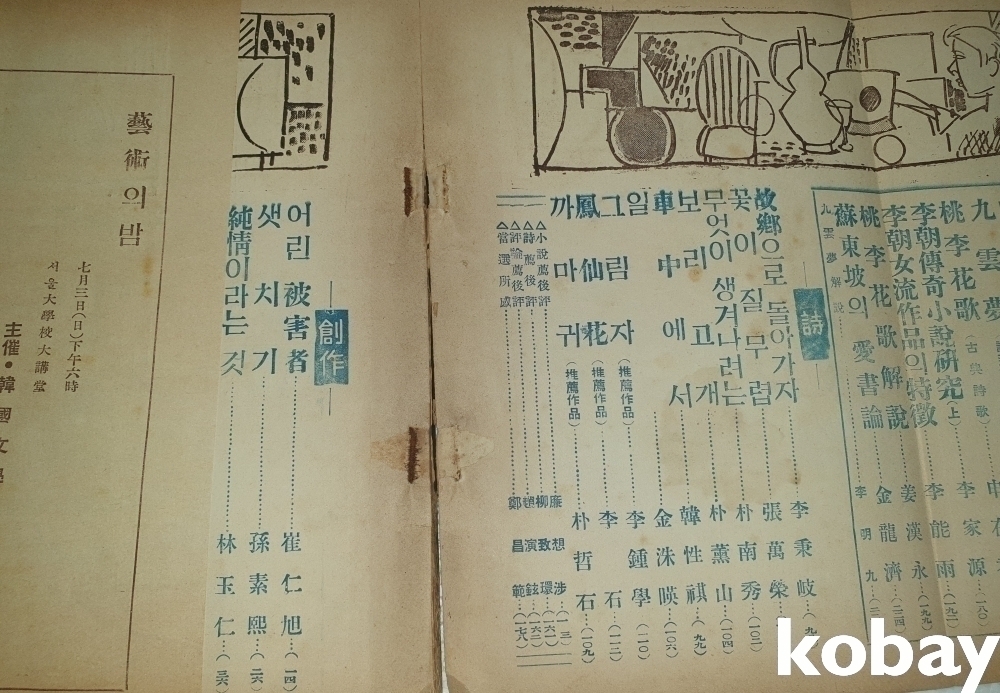 九雲夢
桃李花歌(古典詩歌) 李家源…(一八〇)
李朝傳奇小說硏究(上) 李能雨…(一九二)
李朝女流作品의特徵 姜漢永…(一九九)
桃李花歌解說 金龍濟…(二一四)
蘇東坡의愛書論 李明九
九雲夢解說
詩
故鄕으로돌아가자 李秉岐
꽃이질무렵 張萬榮…(一〇二)
무엇이생겨나려는 朴南秀
보리고개 朴薰山…(一〇四)
車中에서 韓性祺
일 金洙暎…(一〇六)
그림자(推薦作品) 李鍾學…(一一〇)
鳳仙花(推薦作品) 李石…(一一二)
까마귀(推薦作品) 朴哲石…(一〇九)
△小說薦後評 廉想涉
△詩薦後評 柳致環
△評論薦後評 趙演鉉
△當選所感 鄭昌範
創作
어린被害者 崔仁旭…(一四)
샛치기 孫素熙
純情이라는것 林玉仁
藝術의밤
七月三日(日)下午六時
서울大學校大講堂
主催・韓國文學
kobay